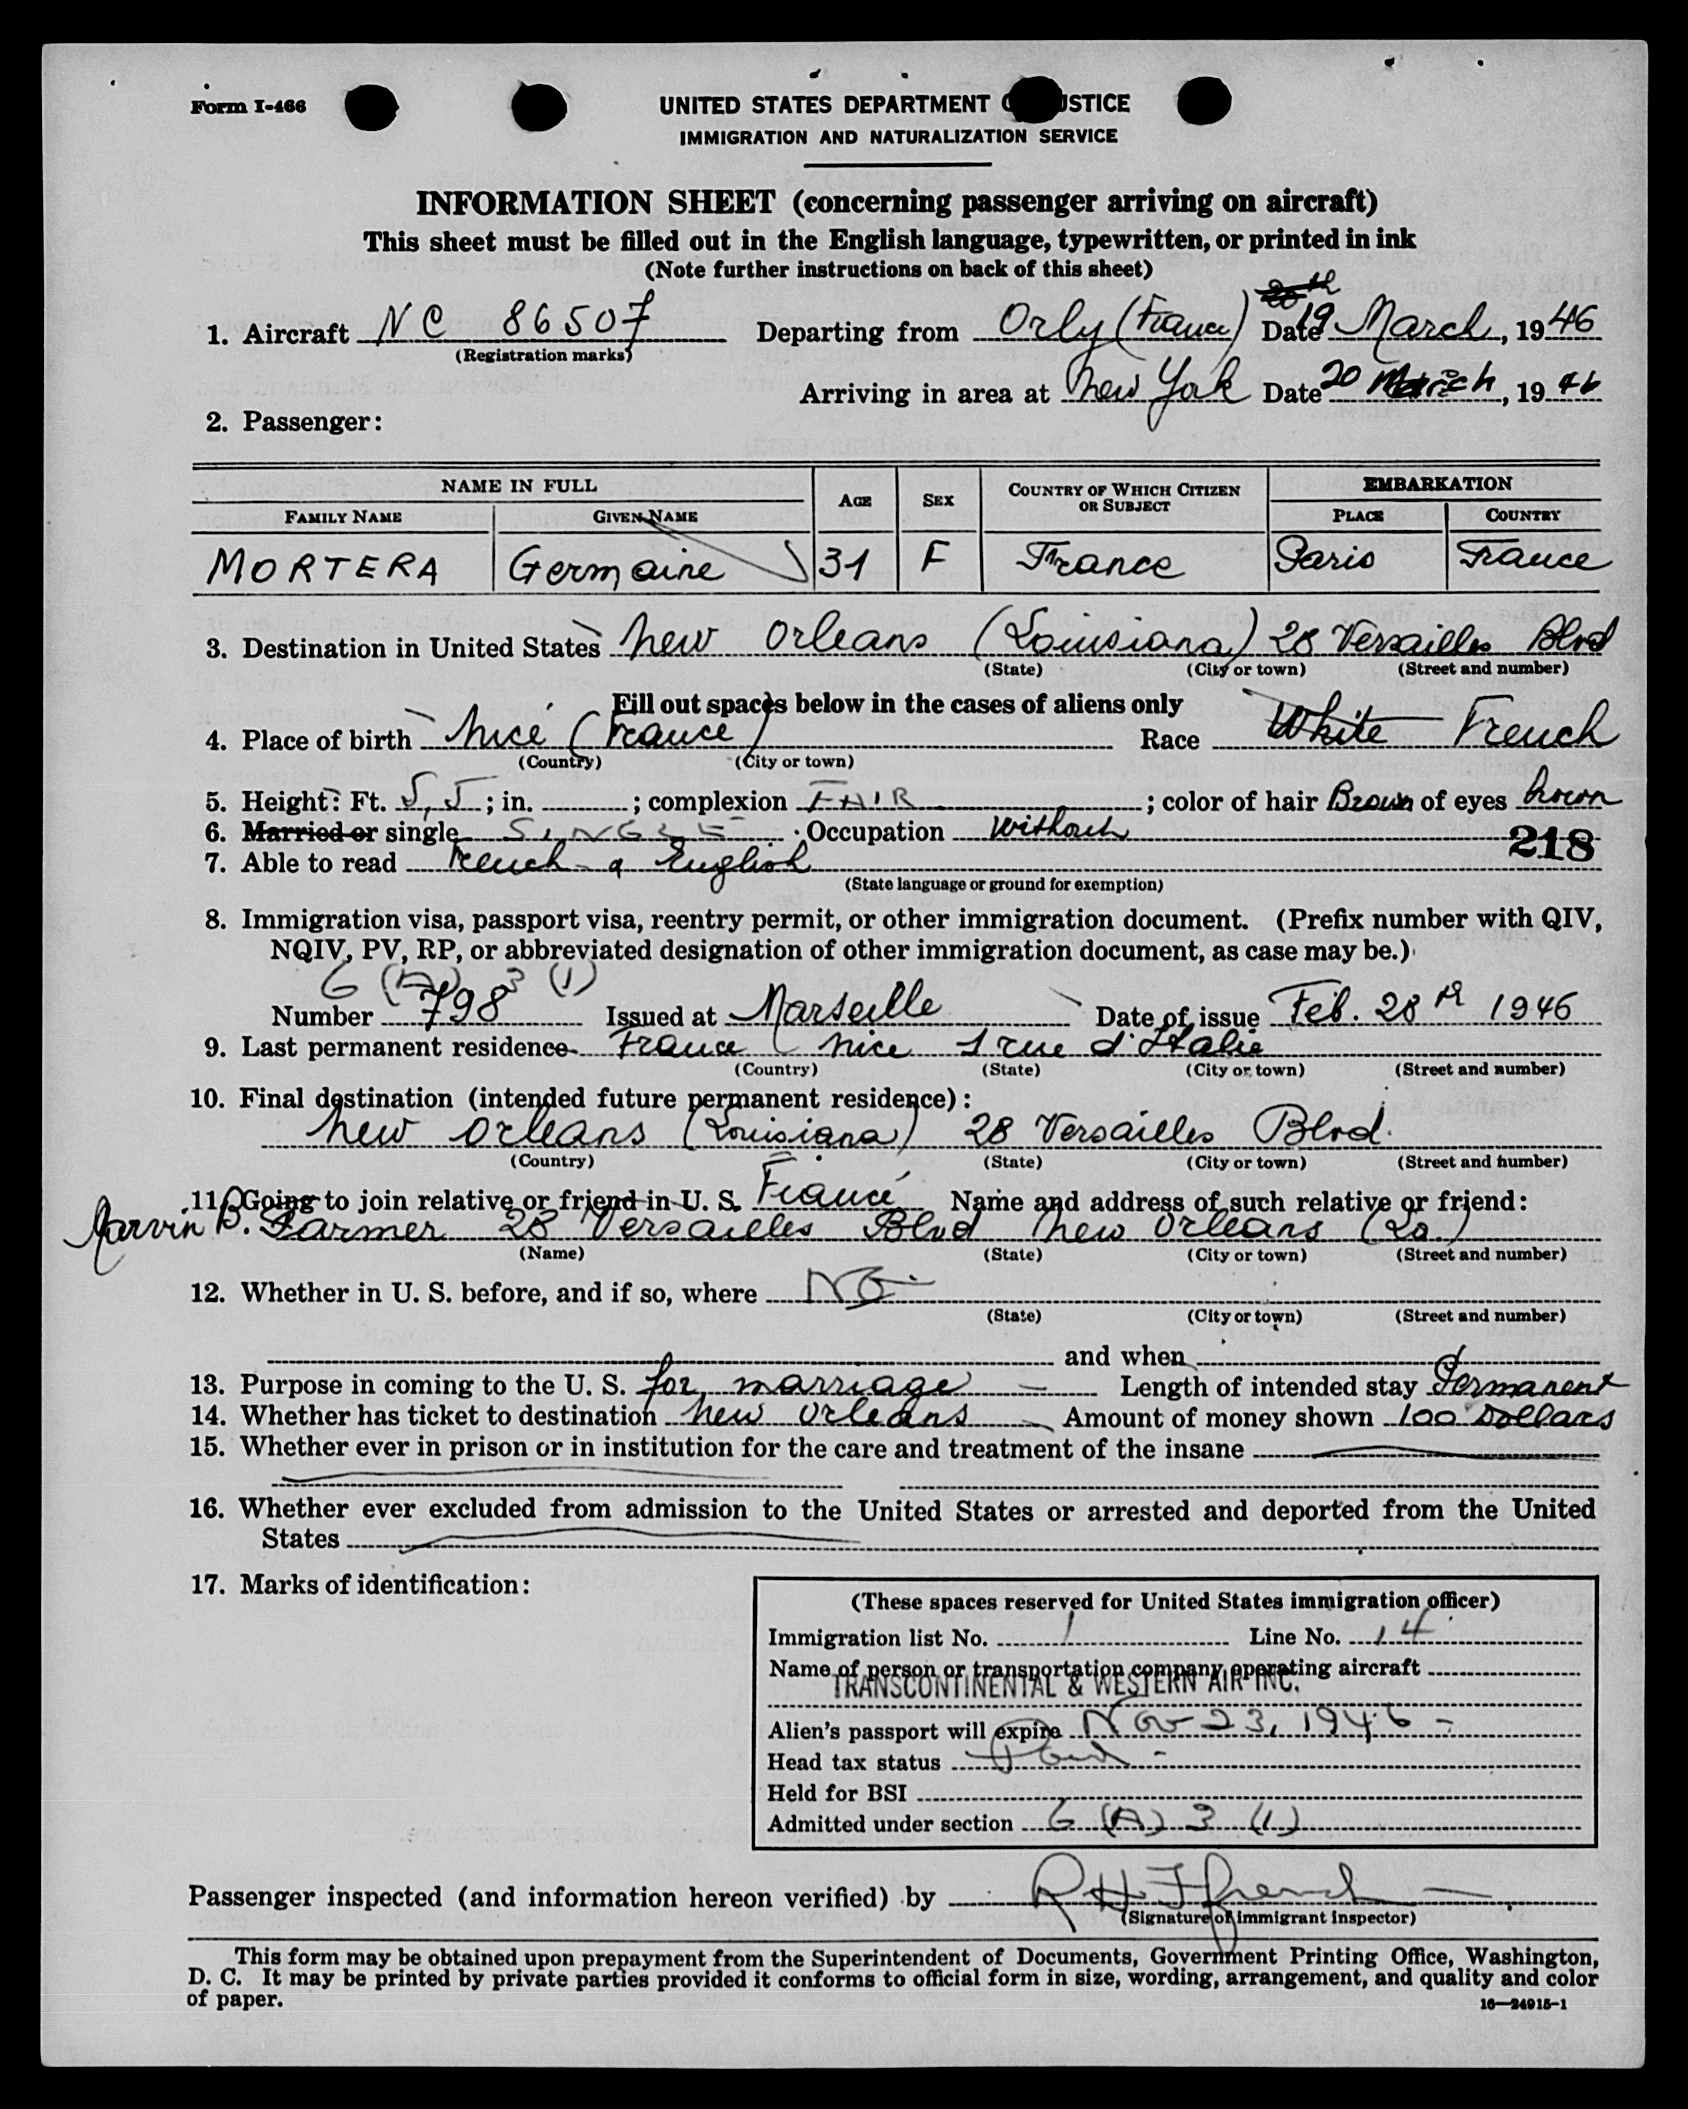 Form I-466
UNITED STATES DEPARTMENT O JUSTICE
IMMIGRATION AND NATURALIZATION SERVICE
INFORMATION SHEET (concerning passenger arriving on aircraft)
This sheet must be filled out in the English language, typewritten, or printed in ink
(Note further instructions on back of this sheet)
20th
1. Aircraft NC 86507 Departing from Orly (France) Date 19 March, 1946
(Registration marks)
Arriving in area at New York Date 20 March, 1946
2. Passenger:
NAME IN FULL AGE SEX COUNTRY OF WHICH CITIZEN OR SUBJECT EMBARKATION
FAMILY NAME GIVEN NAME PLACE COUNTRY
MORTERA Germaine 31 F France Paris France
3. Destination in United States New Orleans (Louisiana) 28 Versailles Blvd
(State) (City or town) (Street and number)
Fill out spaces below in the cases of aliens only
4. Place of birth Nice (France) Race White French
(Country) (City or town)
5. Height: Ft. 5,5; in. ; complexion FAIR; color of hair Brown of eyes brown
6. Married or single SINGLE. Occupation without
218
7. Able to read French & English
(State language or ground for exemption)
8. Immigration visa, passport visa, reentry permit, or other immigration document. (Prefix number with QIV,
NQIV, PV, RP, or abbreviated designation of other immigration document, as case may be.)
6 (A) 3 (1)
Number 798 Issued at Marseille Date of issue Feb. 28th 1946
9. Last permanent residence France (Nice 1 rue d'Italie
(Country) (State) (City or town) (Street and number)
10. Final destination (intended future permanent residence):
New Orleans (Louisiana) 28 Versailles Blvd.
(Country) (State) (City or town) (Street and number)
11. Going to join relative or friend in U. S. Fiancé Name and address of such relative or friend:
Marvin B. Farmer 28 Versailles Blvd New Orleans (La.)
(Name) (State) (City or town) (Street and number)
12. Whether in U. S. before, and if so, where NO
(State) (City or town) (Street and number)
and when
13. Purpose in coming to the U. S. for marriage Length of intended stay Permanent
14. Whether has ticket to destination New Orleans Amount of money shown 100 Dollars
15. Whether ever in prison or in institution for the care and treatment of the insane
16. Whether ever excluded from admission to the United States or arrested and deported from the United
States
17. Marks of identification:
(These spaces reserved for United States immigration officer)
Immigration list No. 1 Line No. 14
Name of person or transportation company operating aircraft
TRANSCONTINENTAL & WESTERN AIR INC.
Alien's passport will expire Nov 23, 1946
Head tax status Paid
Held for BSI
Admitted under section 6 (A) 3 (1)
Passenger inspected (and information hereon verified) by
(Signature of immigrant inspector)
This form may be obtained upon prepayment from the Superintendent of Documents, Government Printing Office, Washington,
D. C. It may be printed by private parties provided it conforms to official form in size, wording, arrangement, and quality and color
of paper.
16—24915-1